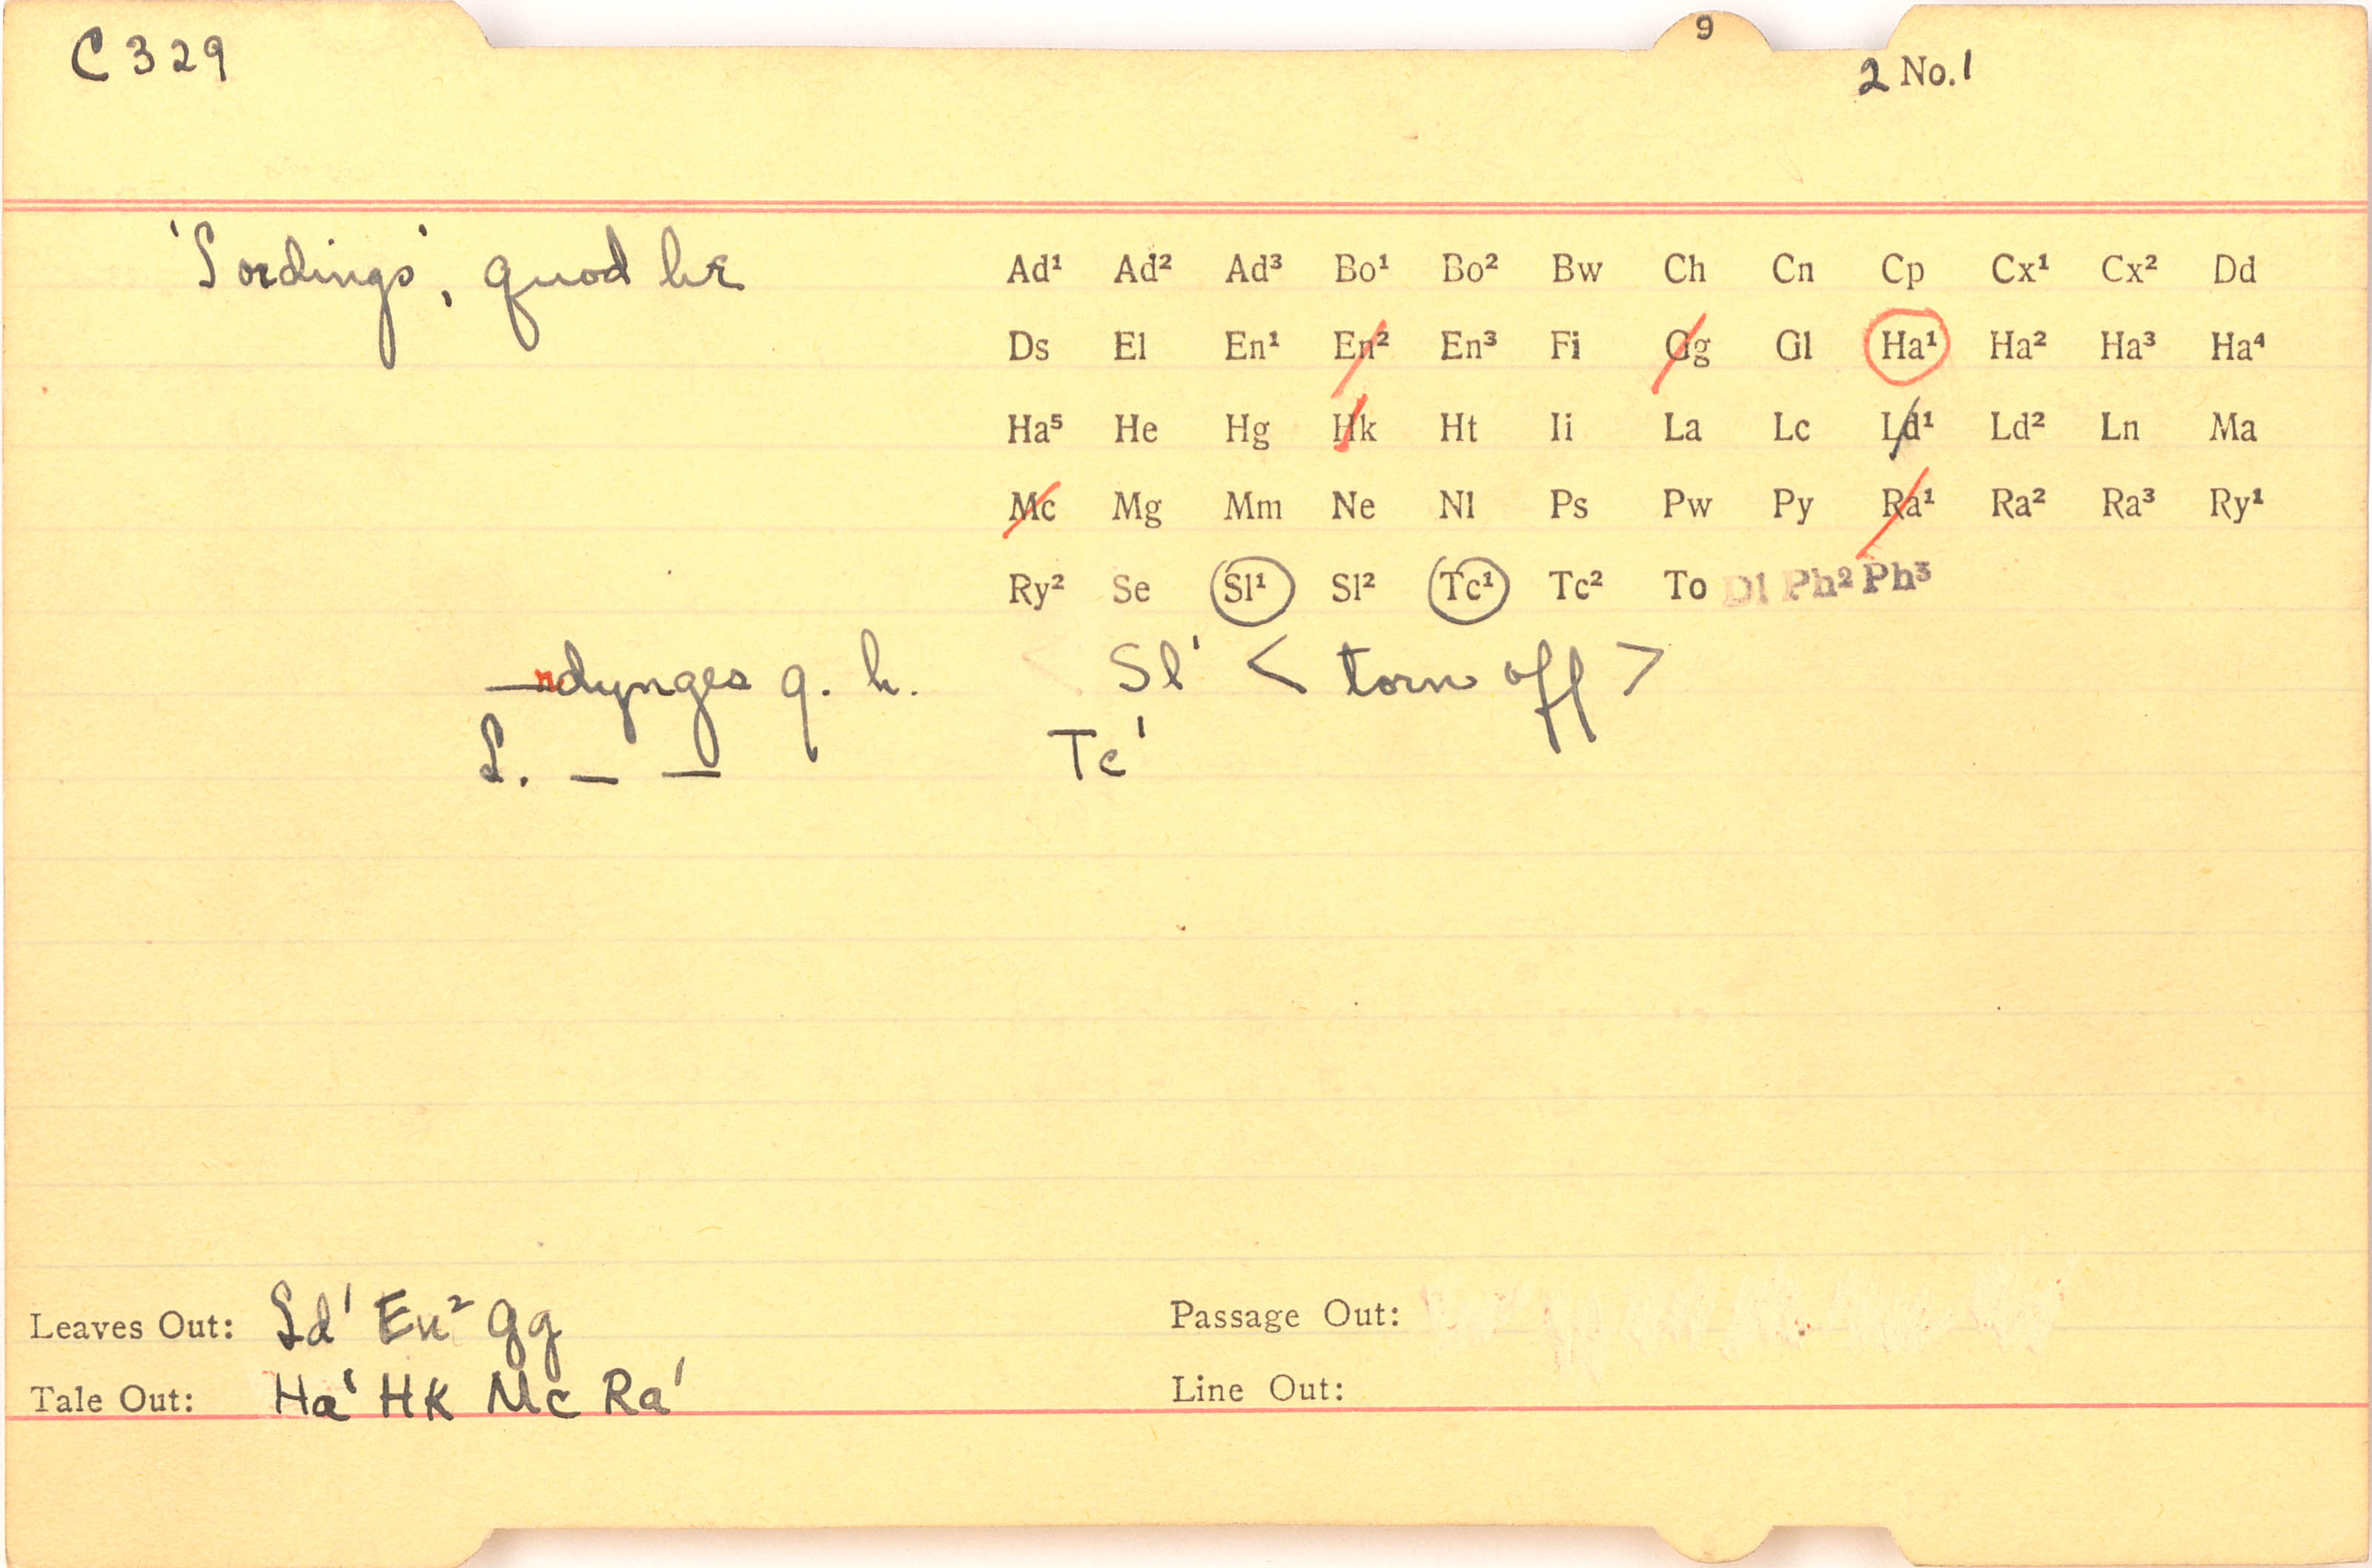 C 329
9
2 No. 1
'Lordings', quod he
Ad¹ Ad² Ad³ Bo¹ Bo² Bw Ch Cn Cp Cx¹ Cx² Dd
Ds El En¹ En² En³ Fi Gg Gl Ha¹ Ha² Ha³ Ha⁴
Ha⁵ He Hg Hk Ht Ii La Lc Ld¹ Ld² Ln Ma
Mc Mg Mm Ne Nl Ps Pw Py Ra¹ Ra² Ra³ Ry¹
Ry² Se Sl¹ Sl² Tc¹ Tc² To Dl Ph² Ph³
—dynges q. h. Sl¹ < torn off >
L. — — Tc¹
Leaves Out: Ld¹ En² Gg
Passage Out:
Tale Out: Ha¹ Hk Mc Ra¹
Line Out: